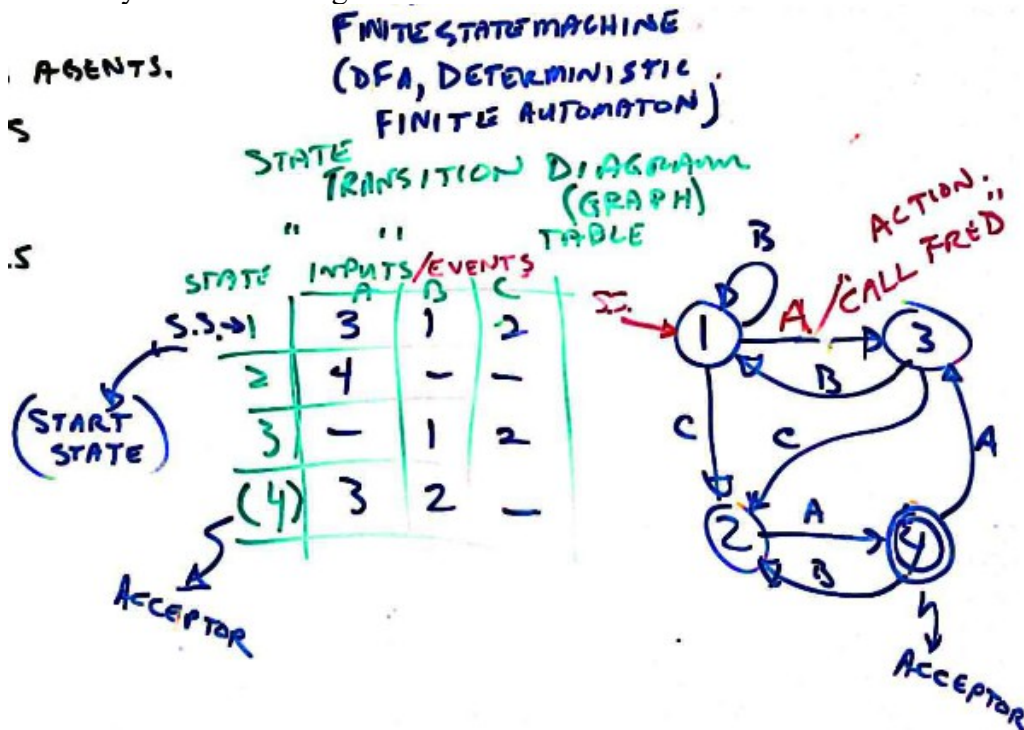 FINITE STATE MACHINE
AGENTS.
(DFA, DETERMINISTIC
FINITE AUTOMATON)
S
STATE
TRANSITION DIAGRAM
(GRAPH)
" " TABLE
.S
STATE INPUTS/EVENTS
A B C
S.S. → 1 3 1 2
2 4 - -
3 - 1 2
(4) 3 2 -
(START
STATE)
ACCEPTOR
ACTION.
B
A/"CALL FRED"
S.S.
1 3
B
C C A
2 A 4
B
ACCEPTOR